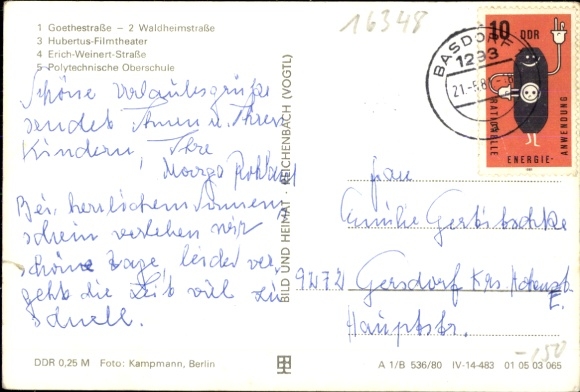 1 Goethestraße – 2 Waldheimstraße
3 Hubertus-Filmtheater
4 Erich-Weinert-Straße
5 Polytechnische Oberschule
16348
10 DDR
RATIONELLE
ENERGIE-
ANWENDUNG
BASDORF
1293
21.-5.8
Schöne Urlaubsgrüße
sendet Ihnen u. Ihren
Kindern, Ihre
Bei herrlichem Sonnen
schein verleben wir
schöne Tage, leider ver-
geht die Zeit viel zu
schnell.
BILD UND HEIMAT REICHENBACH (VOGTL)
Frau
9272 Gersdorf Krs. Hohenst.
E.
Hauptstr.
DDR 0,25 M Foto: Kampmann, Berlin
A 1/B 536/80 IV-14-483 01 05 03 065
-150